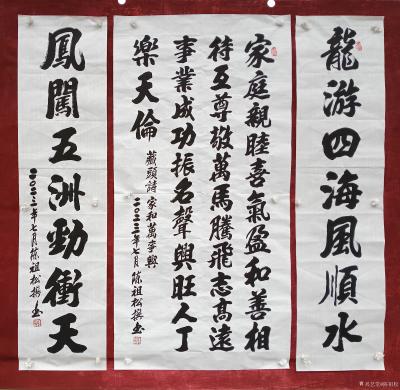 龍游四海風順水
家庭親睦喜氣盈和善相
待互尊敬萬馬騰飛志高遠
事業成功振名聲興旺人丁
樂天倫
藏頭詩 家和萬事興
二〇二三年七月 陳祖松撰書
鳳闖五洲勁衝天
二〇二三年七月陳祖松撰書